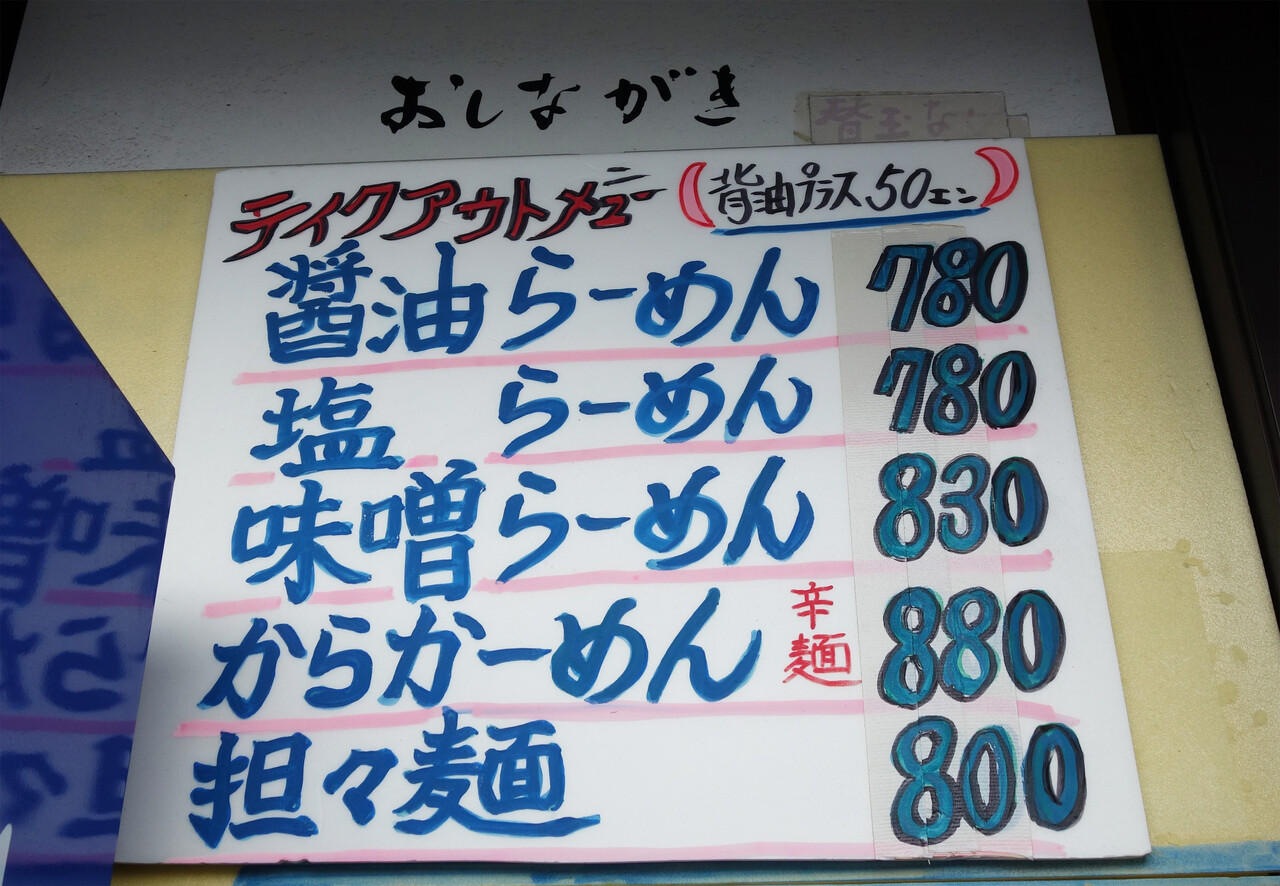 おしながき
替玉な
テイクアウトメニュー（背油プラス50エン）
醤油らーめん 780
塩 らーめん 780
味噌らーめん 830
からかーめん 辛麺 880
担々麺 800